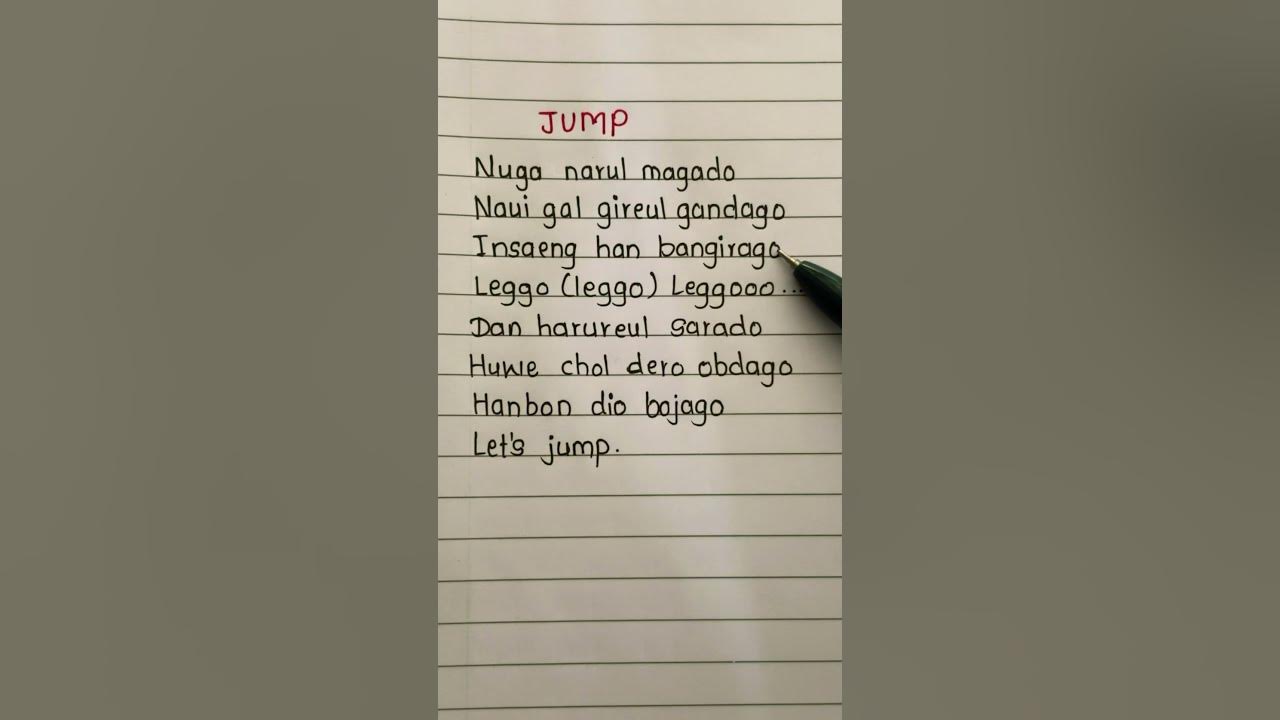 JUMP
Nuga narul magado
Naui gal gireul gandago
Insaeng han bangirago
Leggo (leggo) Leggooo...
Dan harureul sarado
Huwe chol dero obdago
Hanbon dio bojago
Let's jump.